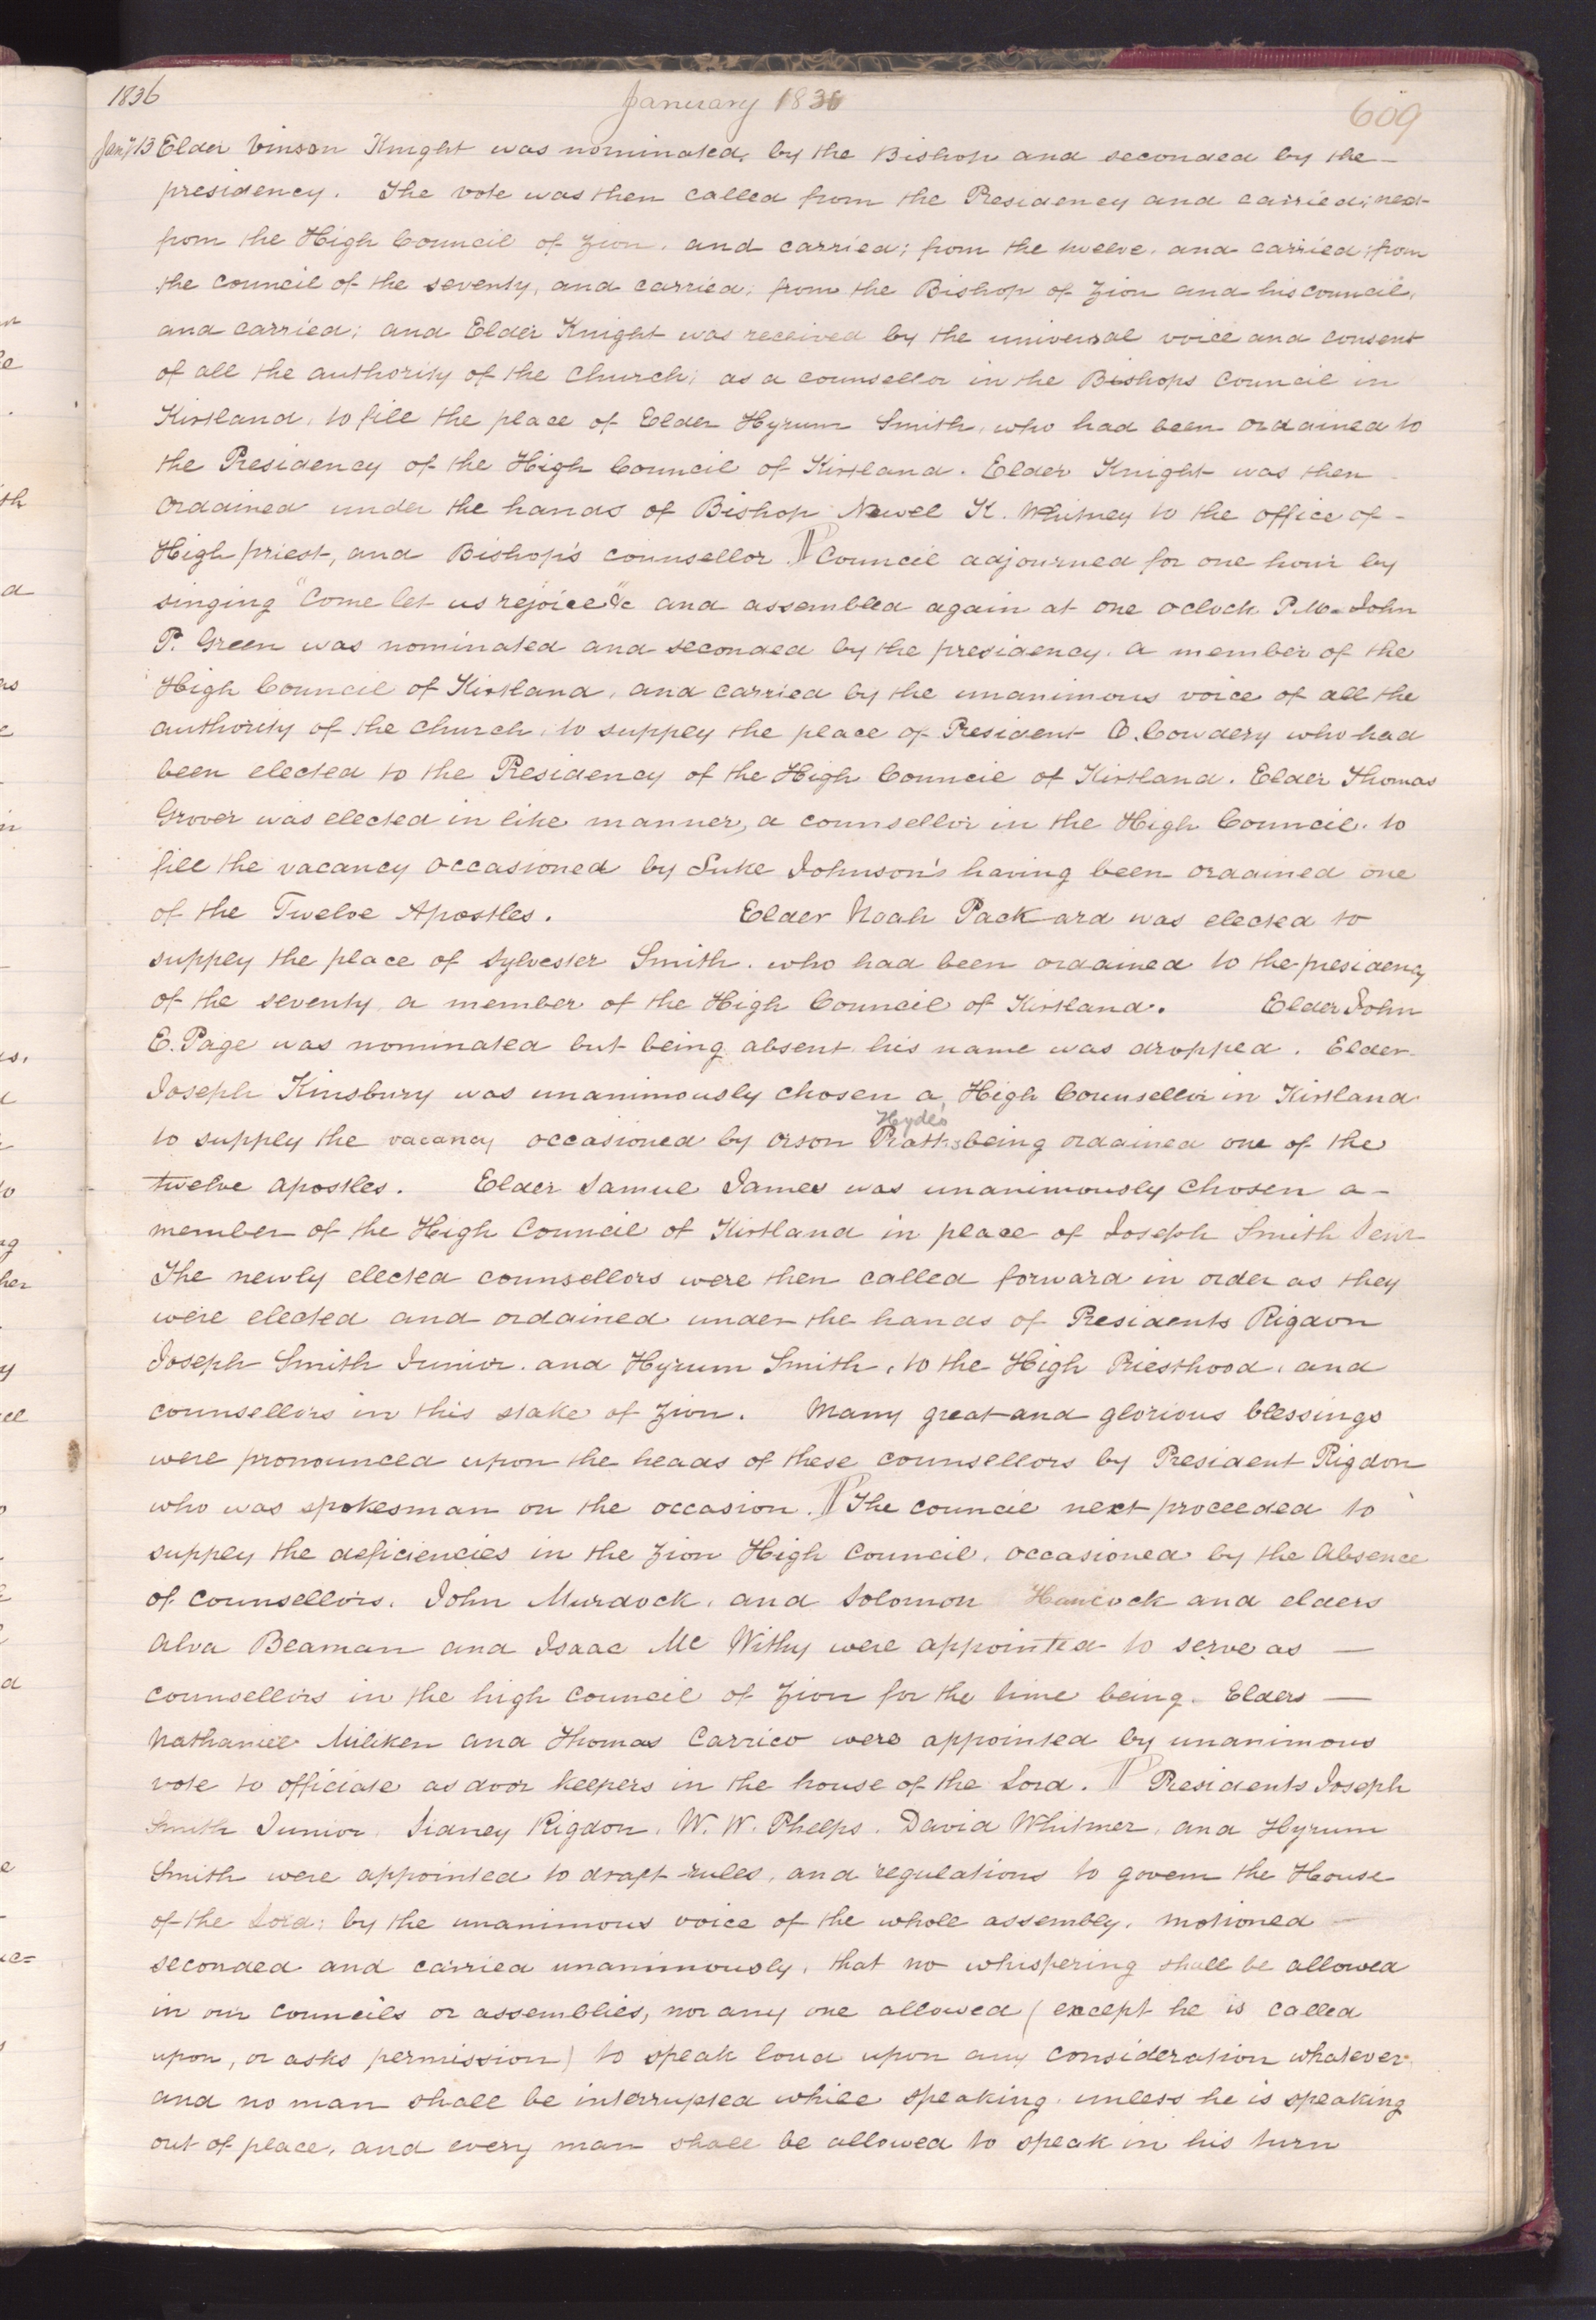 1836
January 1836
609
Jany 13 Elder Vinson Knight was nominated, by the Bishop and seconded by the
presidency. The vote was then called from the Presidency and carried; next
from the High Council of Zion, and carried; from the twelve, and carried; from
the council of the seventy, and carried; from the Bishop of Zion and his council,
and carried; and Elder Knight was received by the universal voice and consent
of all the authority of the Church; as a counsellor in the Bishops council in
Kirtland, to fill the place of Elder Hyrum Smith, who had been ordained to
the Presidency of the High Council of Kirtland. Elder Knight was then
ordained under the hands of Bishop Newel K. Whitney to the office of-
High priest, and Bishop's counsellor. ¶ Council adjourned for one hour by
singing "Come let us rejoice" &c and assembled again at one oclock P.M. John
P. Green was nominated and seconded by the presidency, a member of the
High Council of Kirtland, and carried by the unanimous voice of all the
authority of the church, to supply the place of President O. Cowdery who had
been elected to the Presidency of the High Council of Kirtland. Elder Thomas
Grover was elected in like manner, a counsellor in the High Council, to
fill the vacancy occasioned by Luke Johnson's having been ordained one
of the Twelve Apostles. Elder Noah Packard was elected to
supply the place of Sylvester Smith, who had been ordained to the presidency
of the seventy, a member of the High Council of Kirtland. Elder John
E. Page was nominated but being absent his name was dropped. Elder
Joseph Kinsbury was unanimously chosen a, High Counsellor in Kirtland
Hyde's
to supply the vacancy occasioned by orson Pratts being ordained one of the
twelve apostles. Elder Samuel James was unanimously chosen a-
member of the High Council of Kirtland in place of Joseph Smith Senr
The newly elected counsellors were then called forward in order as they
were elected and ordained under the hands of Presidents Rigdon
Joseph Smith Junior. and Hyrum Smith, to the High Priesthood, and
counsellors in this stake of Zion. Many great and glorious blessings
were pronounced upon the heads of these counsellors by President Rigdon
who was spokesman on the occasion. ¶ The council next proceeded to
supply the deficiencies in the Zion High council, occasioned by the absence
of counsellors. John Murdock, and Solomon Hancock and elders
Alva Beaman and Isaac Mc Withy were appointed to serve as —
counsellors in the high council of Zion for the time being. Elders —
Nathaniel Miliken and Thomas Carrico were appointed by unanimous
vote to officiate as door keepers in the house of the Lord. ¶ Presidents Joseph
Smith Junior, Sidney Rigdon, W. W. Phelps, David Whitmer, and Hyrum
Smith were appointed to draft rules, and regulations to govern the House
of the Lord; by the unanimous voice of the whole assembly. motioned —
seconded and carried unanimously, that no whispering shall be allowed
in our councils or assemblies, nor any one allowed (except he is called
upon, or asks permission) to speak loud upon any consideration whatever
and no man shall be interrupted while speaking, unless he is speaking
out of place, and every man shall be allowed to speak in his turn